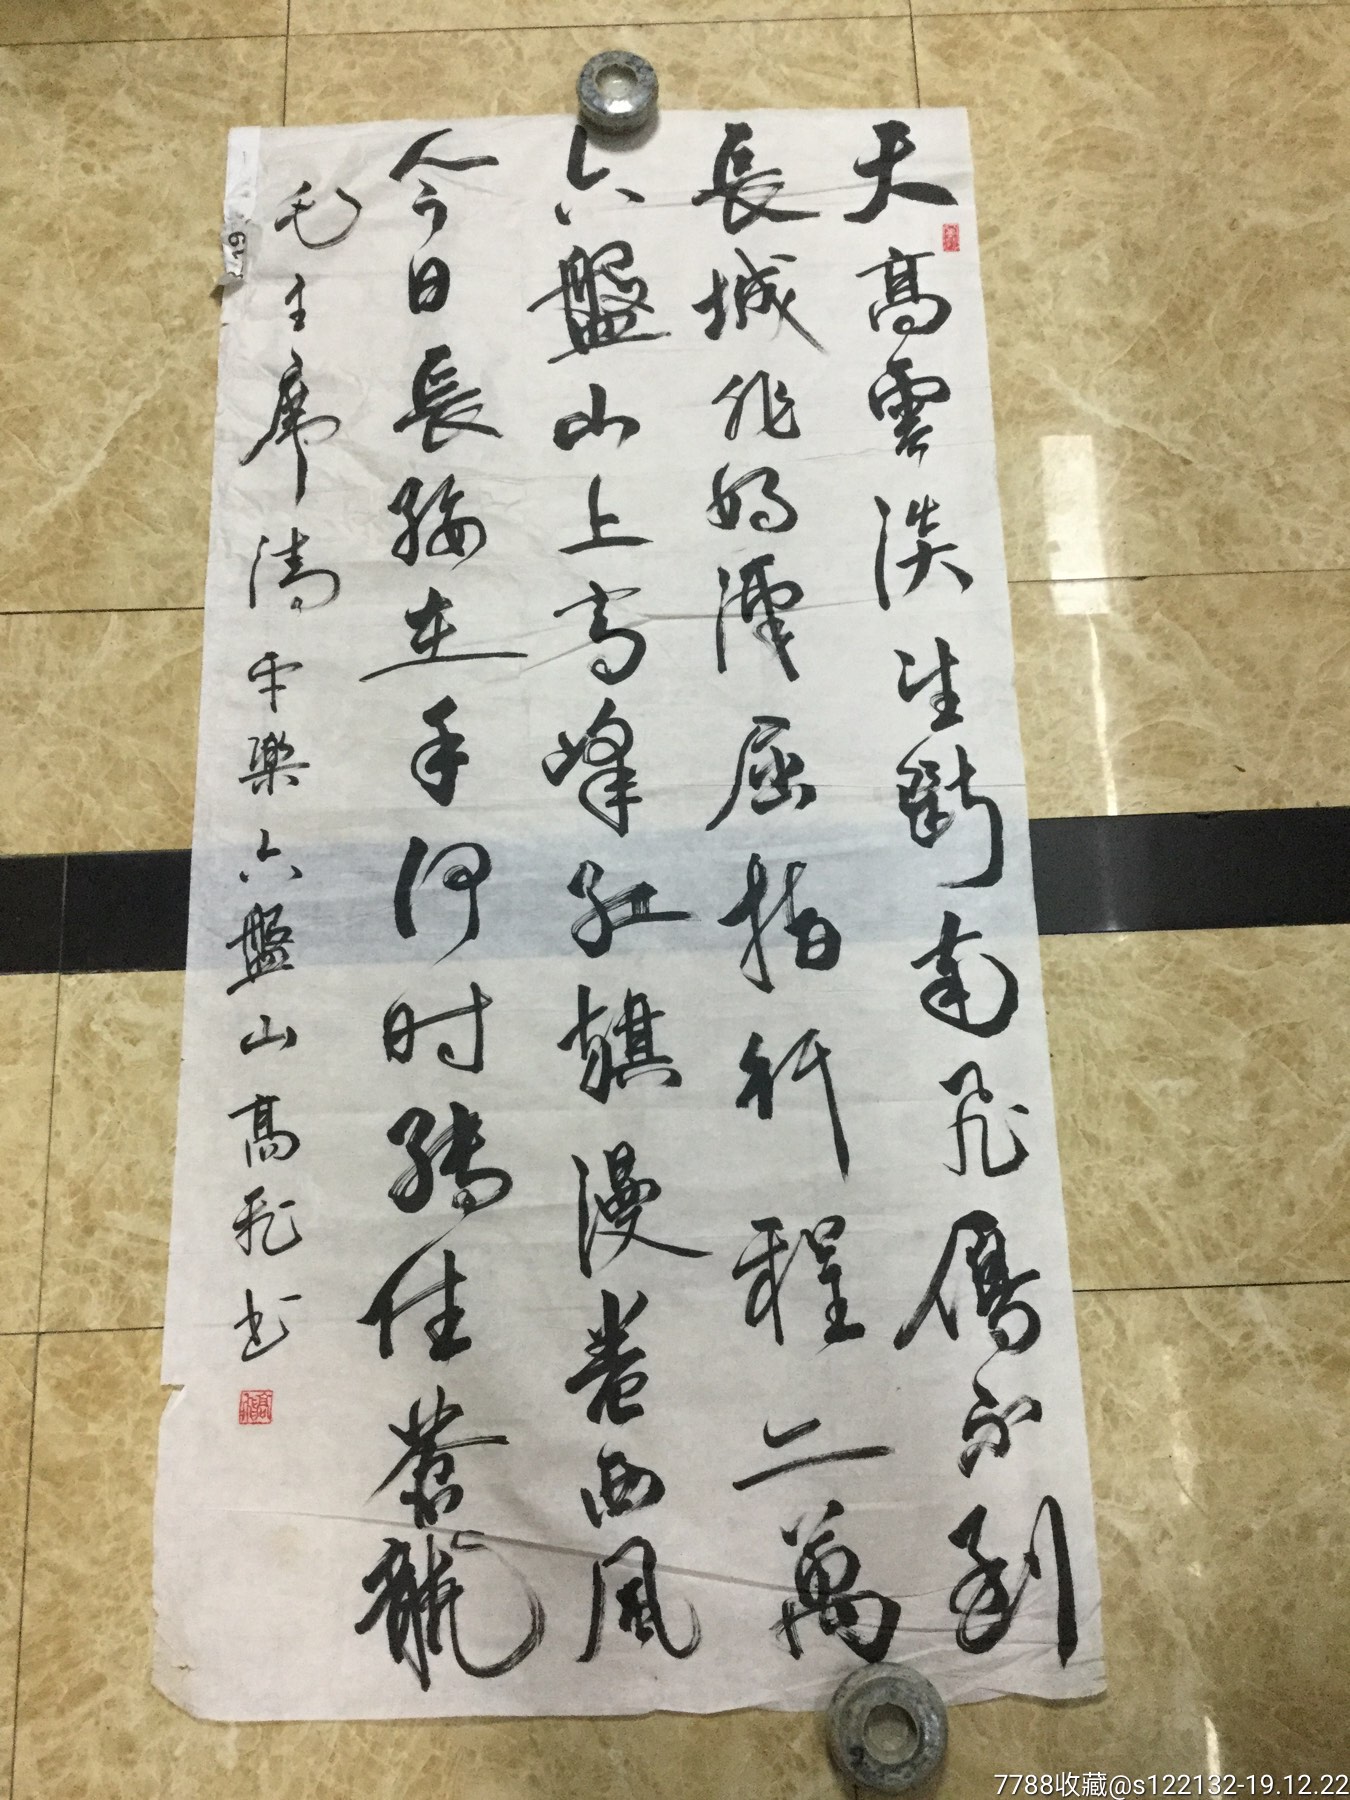 天高雲淡望斷南飛雁不到
長城非好漢屈指行程二萬
六盤山上高峰紅旗漫卷西風
今日長纓在手何时縛住蒼龍
毛主席清平樂六盤山高飛书
7788收藏@s122132-19.12.22